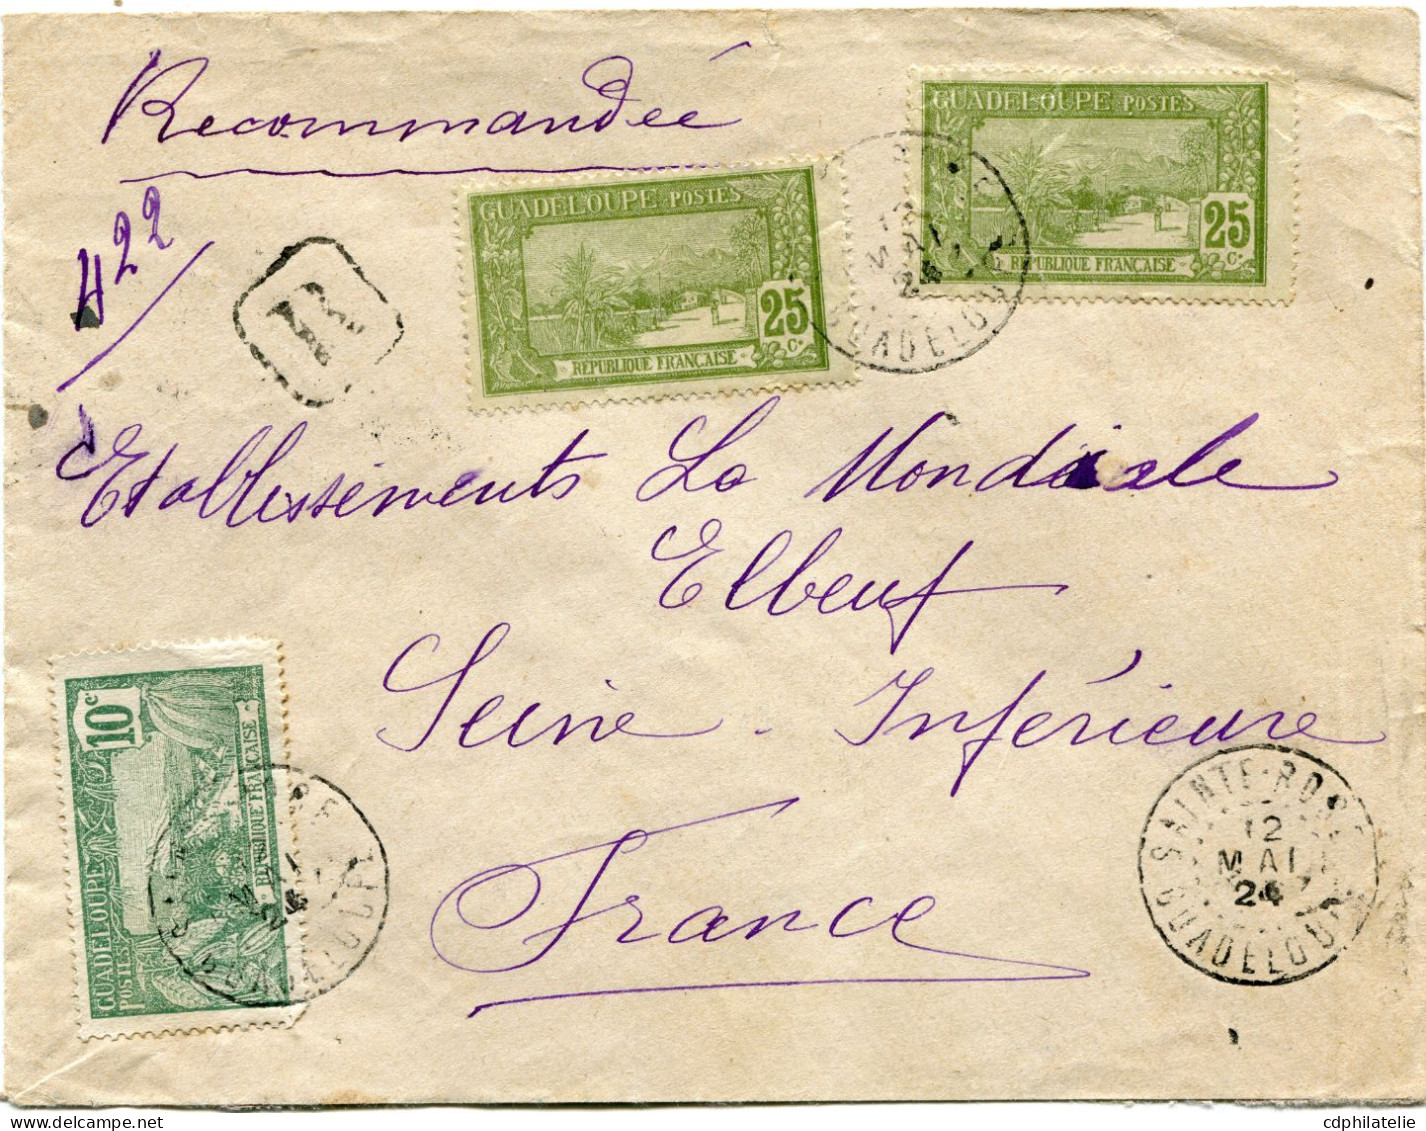 Recommandée
422
R
GUADELOUPE POSTES
25 c.
RÉPUBLIQUE FRANÇAISE
GUADELOUPE POSTES
25 c.
RÉPUBLIQUE FRANÇAISE
12
MAI
24
GUADELOU
Etablissements La Mondiale
Elbeuf
Seine-Inférieure
France
10 c.
GUADELOUPE
POSTES
RÉPUBLIQUE FRANÇAISE
24
GUADELOUPE
SAINTE-ROSE
12
MAI
24
GUADELOUPE
www.cdphilatelie.com